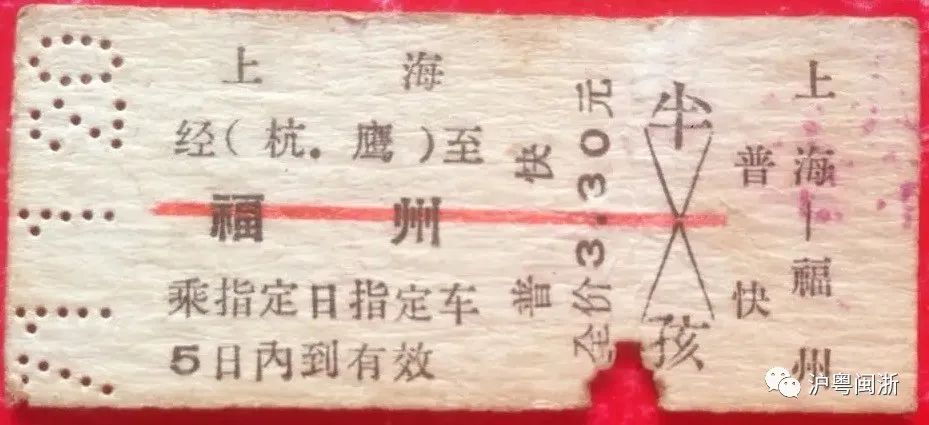 上海
经(杭.鹰)至
福州
乘指定日指定车
5日内到有效
普快
全价3.30元
半
孩
普快
上海—福州
沪粤闽浙